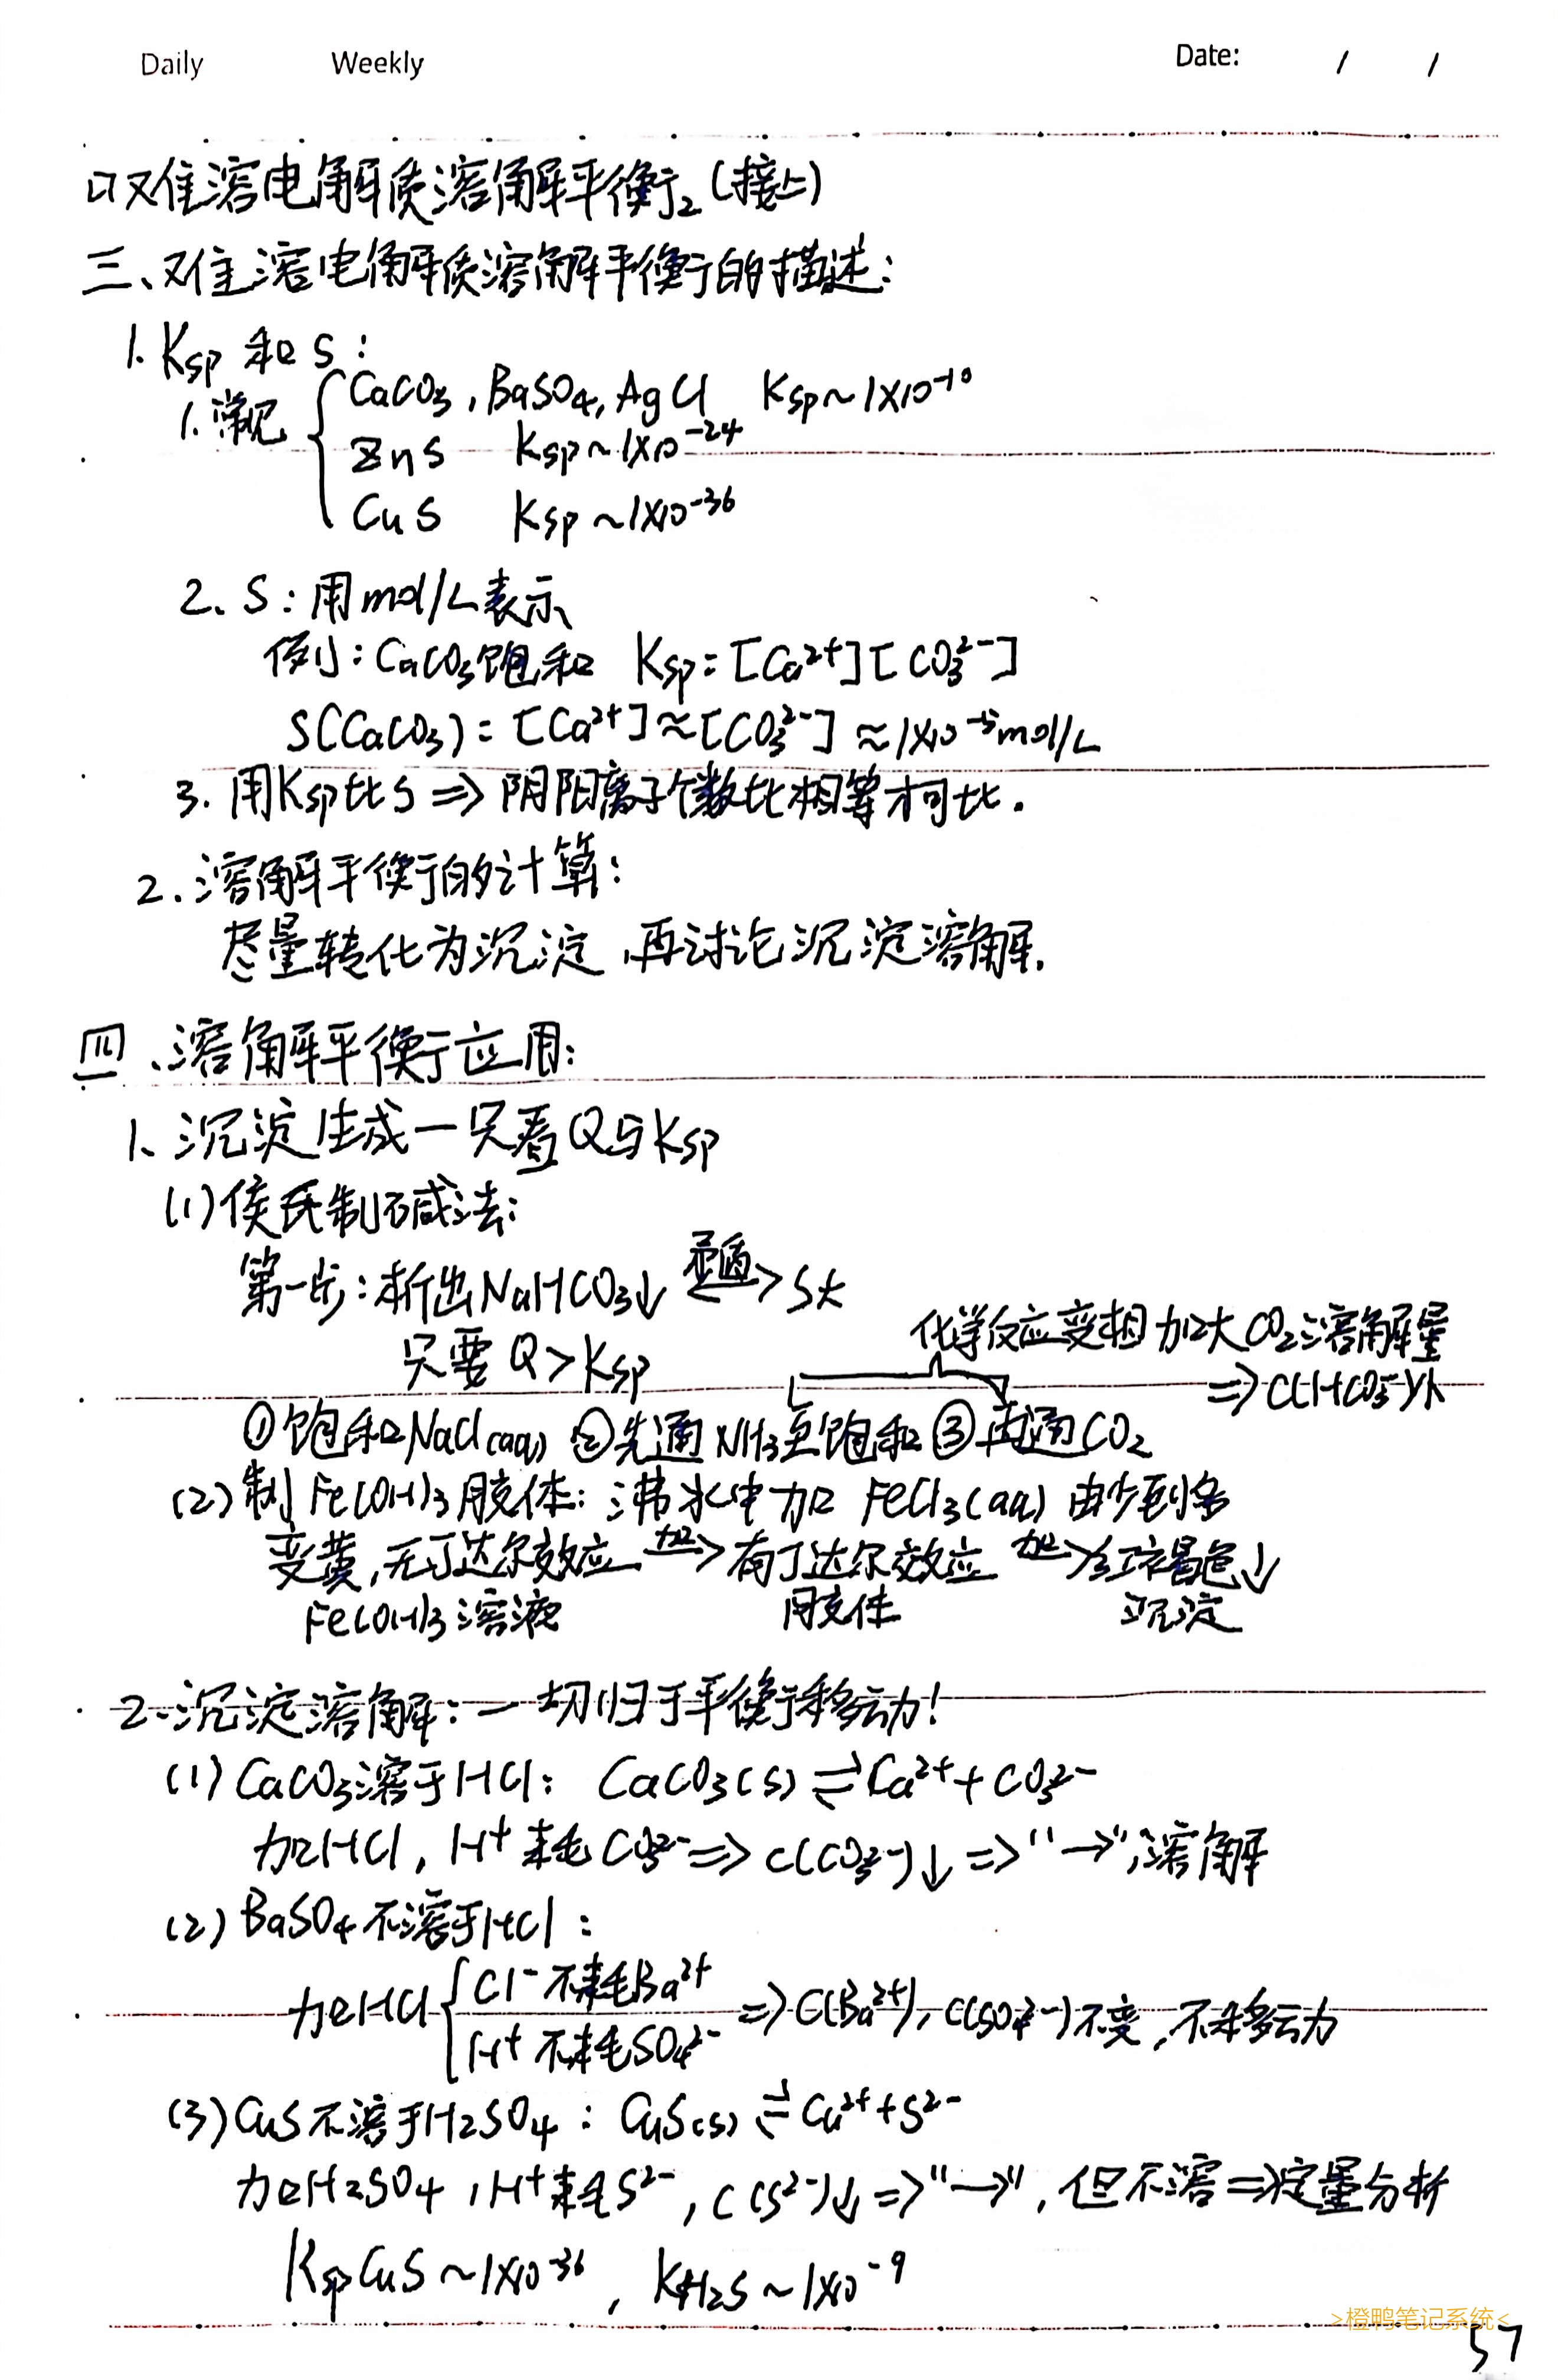 Daily Weekly Date: / /
难溶电解质溶解平衡2(接上)
三、难溶电解质溶解平衡的描述:
1. Ksp 和 S:
1. 常见 { CaCO3, BaSO4, AgCl Ksp~1×10⁻¹⁰
ZnS Ksp~1×10⁻²⁴
CuS Ksp~1×10⁻³⁶
2. S: 用mol/L表示
例: CaCO3饱和 Ksp=[Ca²⁺][CO3²⁻]
S(CaCO3)=[Ca²⁺]≈[CO3²⁻]≈1×10⁻⁵mol/L
3. 用Ksp比S ⇒ 阴阳离子个数比相等才可比.
2. 溶解平衡的计算:
尽量转化为沉淀,再讨论沉淀溶解.
四、溶解平衡应用:
1、沉淀生成—只看Q与Ksp
(1)侯氏制碱法:
第一步:析出NaHCO3↓ 矛盾 S大
只要 Q>Ksp
化学反应变相加大CO2溶解量
⇒C(HCO3⁻)大
①饱和NaCl(aq) ②先通NH3至饱和 ③再通CO2
(2)制Fe(OH)3胶体: 沸水中加 FeCl3(aq) 由少到多
变黄,无丁达尔效应 加→ 有丁达尔效应 加→ 红褐色↓
Fe(OH)3溶液 胶体 沉淀
2.沉淀溶解:一切归于平衡移动!
(1)CaCO3溶于HCl: CaCO3(s)⇌Ca²⁺+CO3²⁻
加HCl, H⁺耗CO3²⁻⇒C(CO3²⁻)↓⇒"→",溶解
(2)BaSO4不溶于HCl:
加HCl { Cl⁻不耗Ba²⁺
H⁺不耗SO4²⁻ ⇒C(Ba²⁺),C(SO4²⁻)不变,不移动
(3)CuS不溶于H2SO4: CuS(s)⇌Cu²⁺+S²⁻
加H2SO4,H⁺耗S²⁻,C(S²⁻)↓⇒"→",但不溶⇒定量分析
KspCuS~1×10⁻³⁶, KH2S~1×10⁻⁹
>橙鸭笔记系统<
57